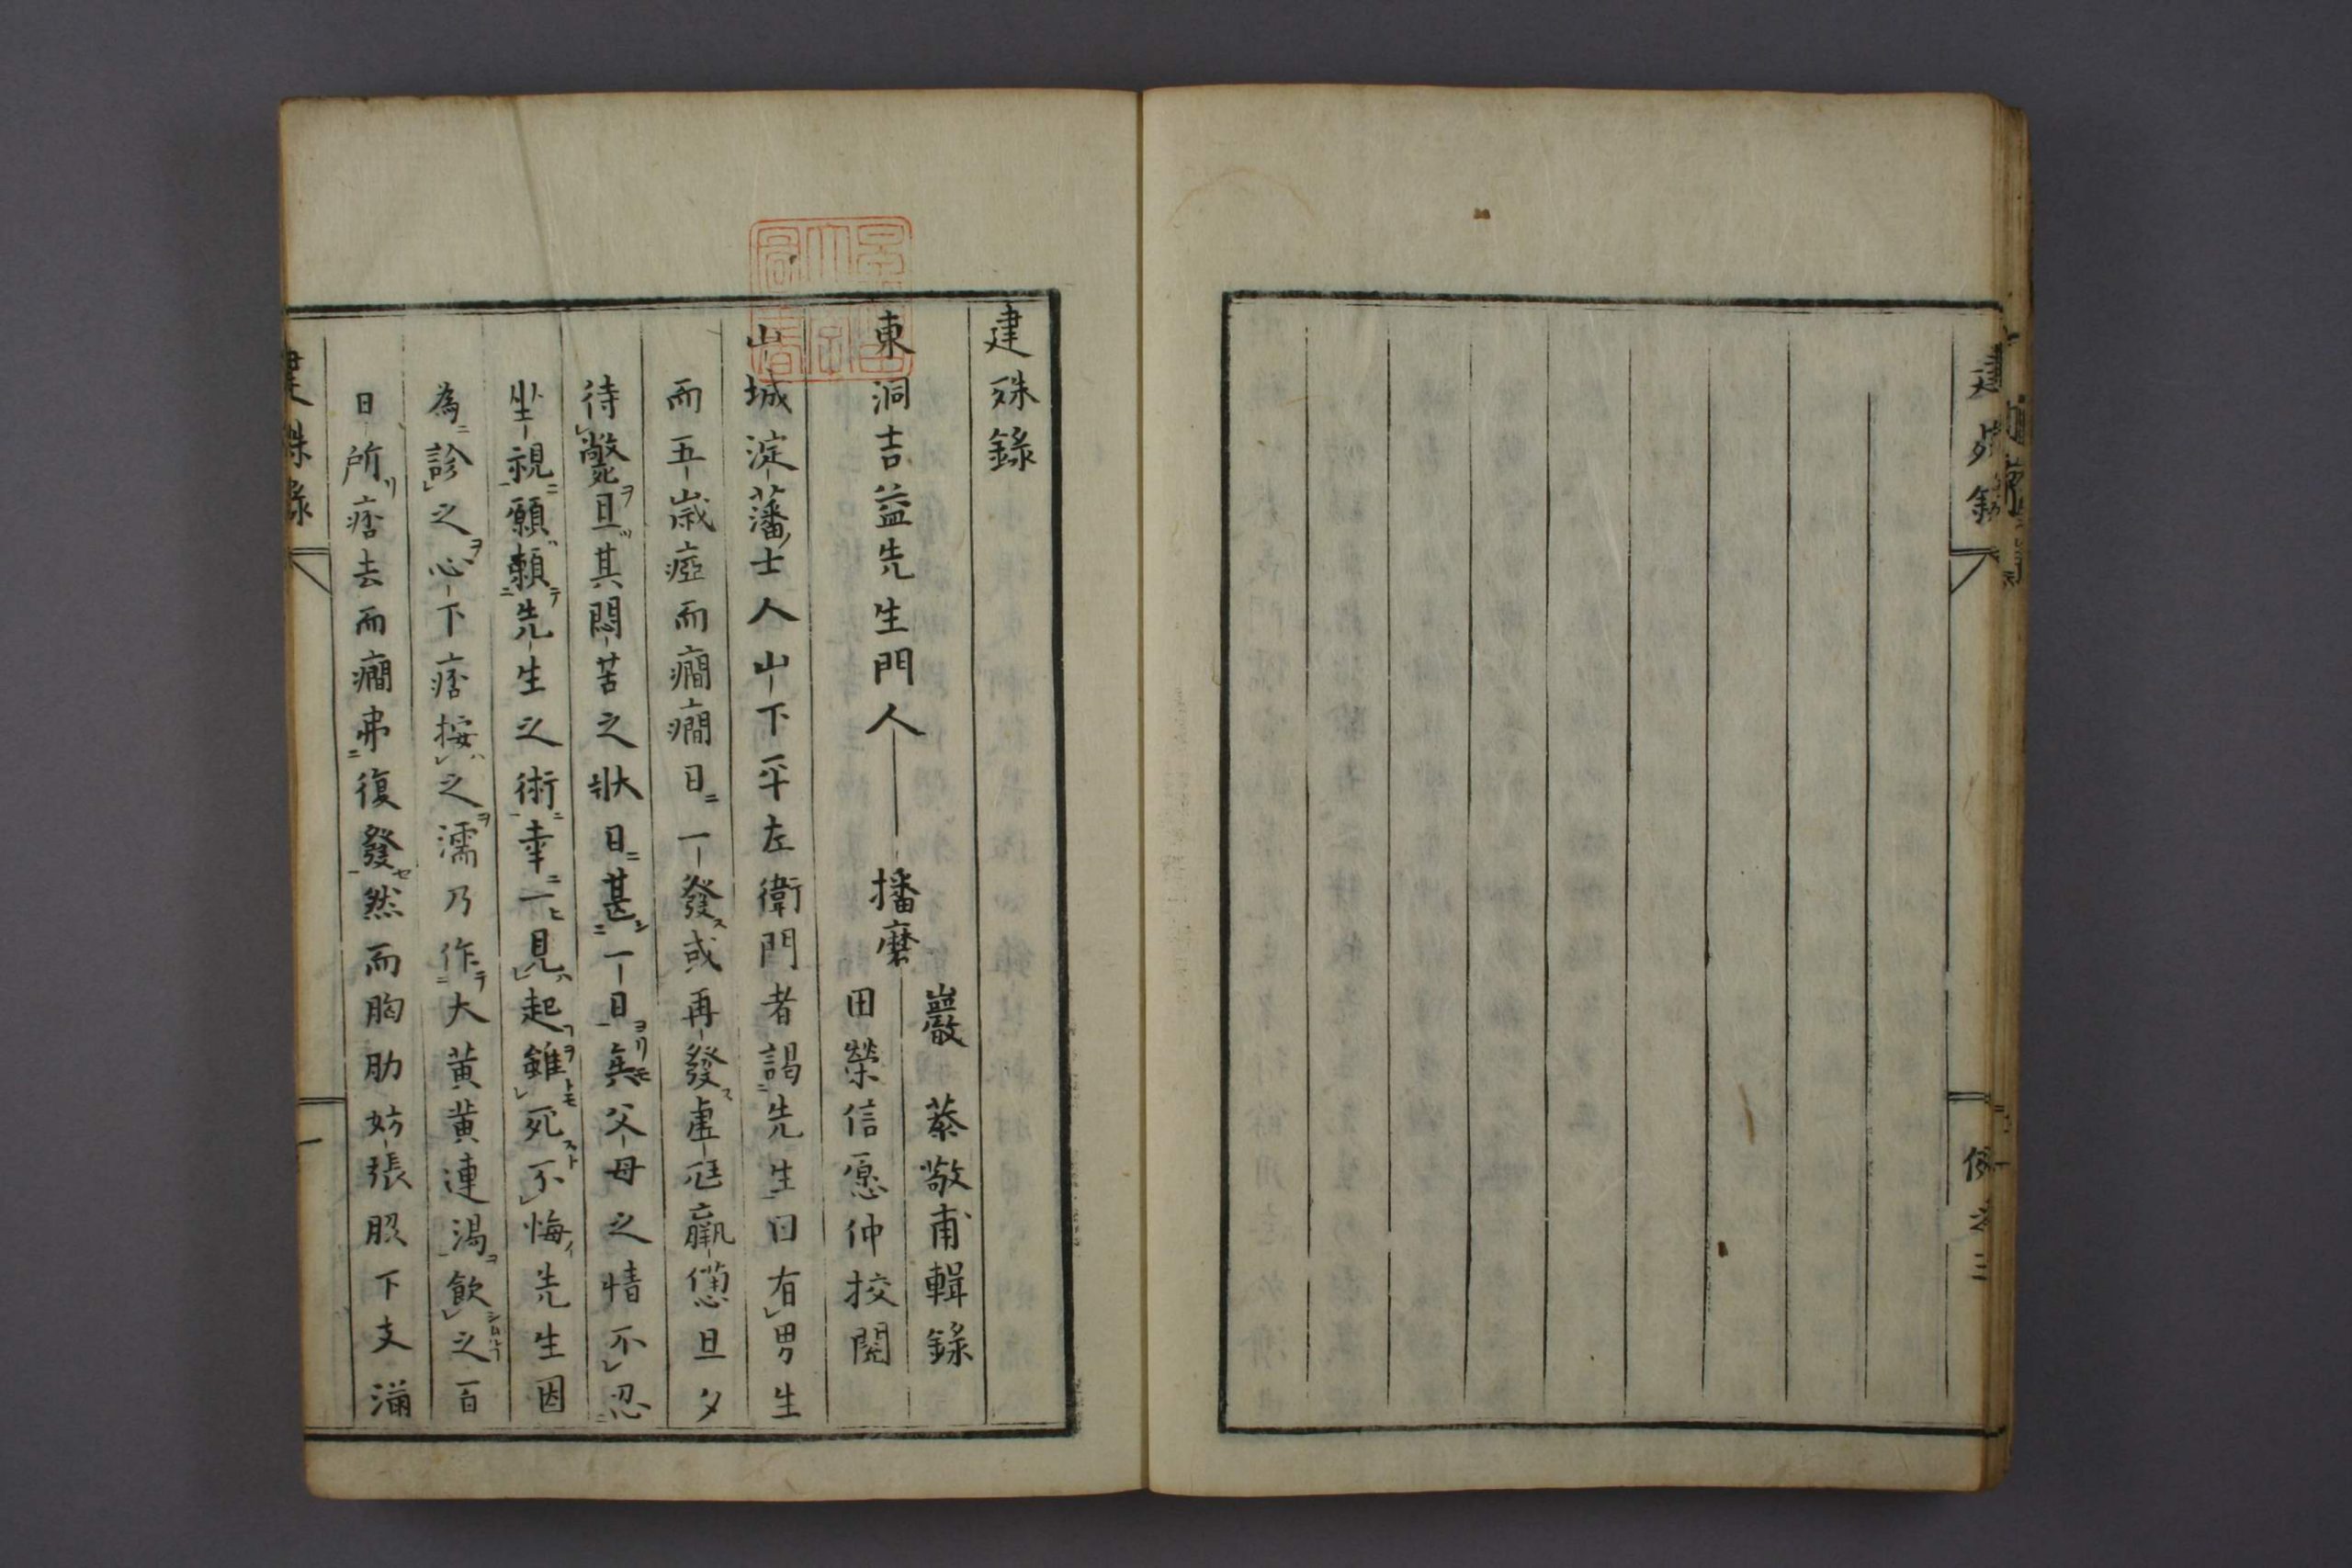 建殊錄
例言三
建殊錄
巖恭敬甫輯錄
東洞吉益先生門人 播磨
田榮信愿仲挍閱
山城淀藩士人山下平左衛門者謁先生曰有男生
而五歲瘂而癇癇日一發或再發虛尫羸憊旦夕
待斃且其悶苦之狀日甚一日矣父母之情不忍
坐視願賴先生之術幸一見起雖死不悔先生因
為診之心下痞按之濡乃作大黃黃連湯飲之百
日所痞去而癇弗復發然而胸肋妨張脇下支滿
建殊錄
一